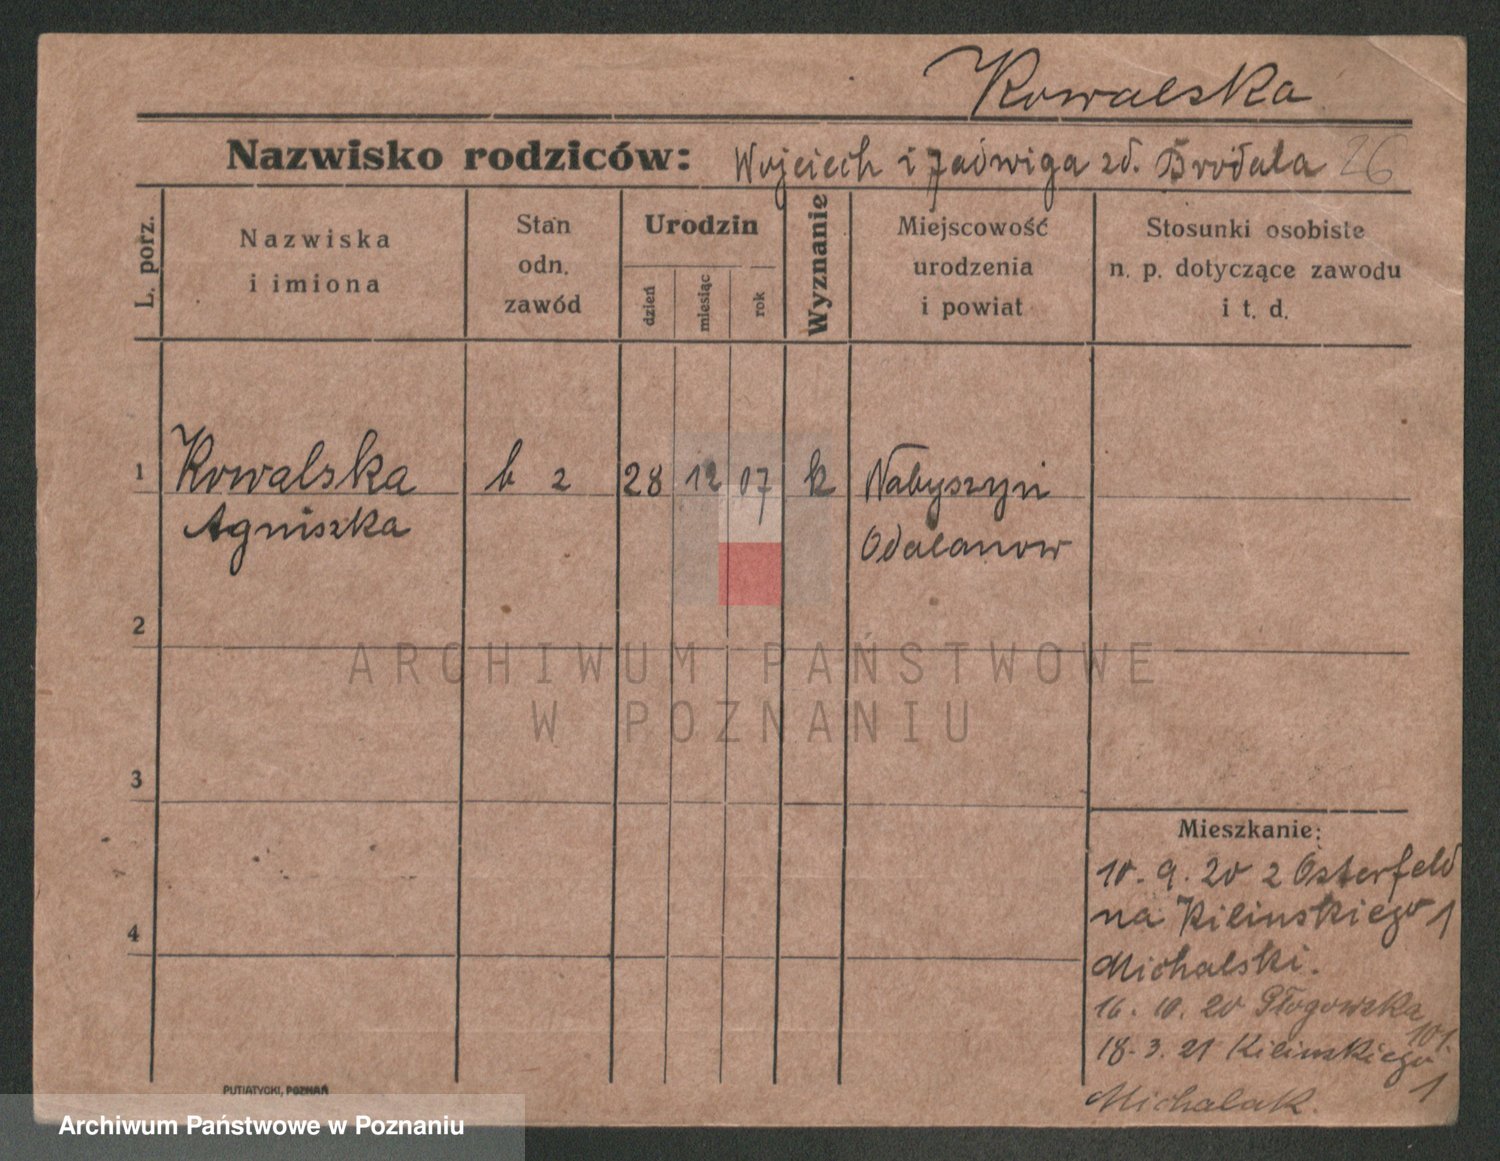 Kowalska
Nazwisko rodziców: Wojciech i Jadwiga zd. Brodala 26
L. porz.
Nazwiska
i imiona
Stan
odn.
zawód
Urodzin
dzień
miesiąc
rok
Wyznanie
Miejscowość
urodzenia
i powiat
Stosunki osobiste
n. p. dotyczące zawodu
i t. d.
1 Kowalska b z 28 12 07 k Nabyszyn
Agniszka Odalanow
2
ARCHIWUM PAŃSTWOWE
W POZNANIU
3
4
Mieszkanie:
10. 9. 20 z Osterfeld
na Kilinskiego 1
Michalski.
16. 10. 20 Głogowska 101.
18. 3. 21 Kilinskiego 1
Michalak.
PUTIATYCKI, POZNAŃ
Archiwum Państwowe w Poznaniu